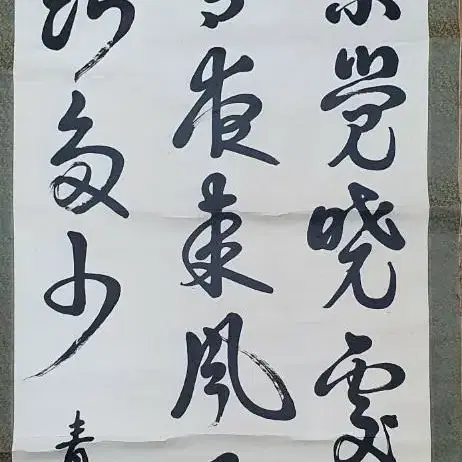 覺曉處
夜來風
知多少
青